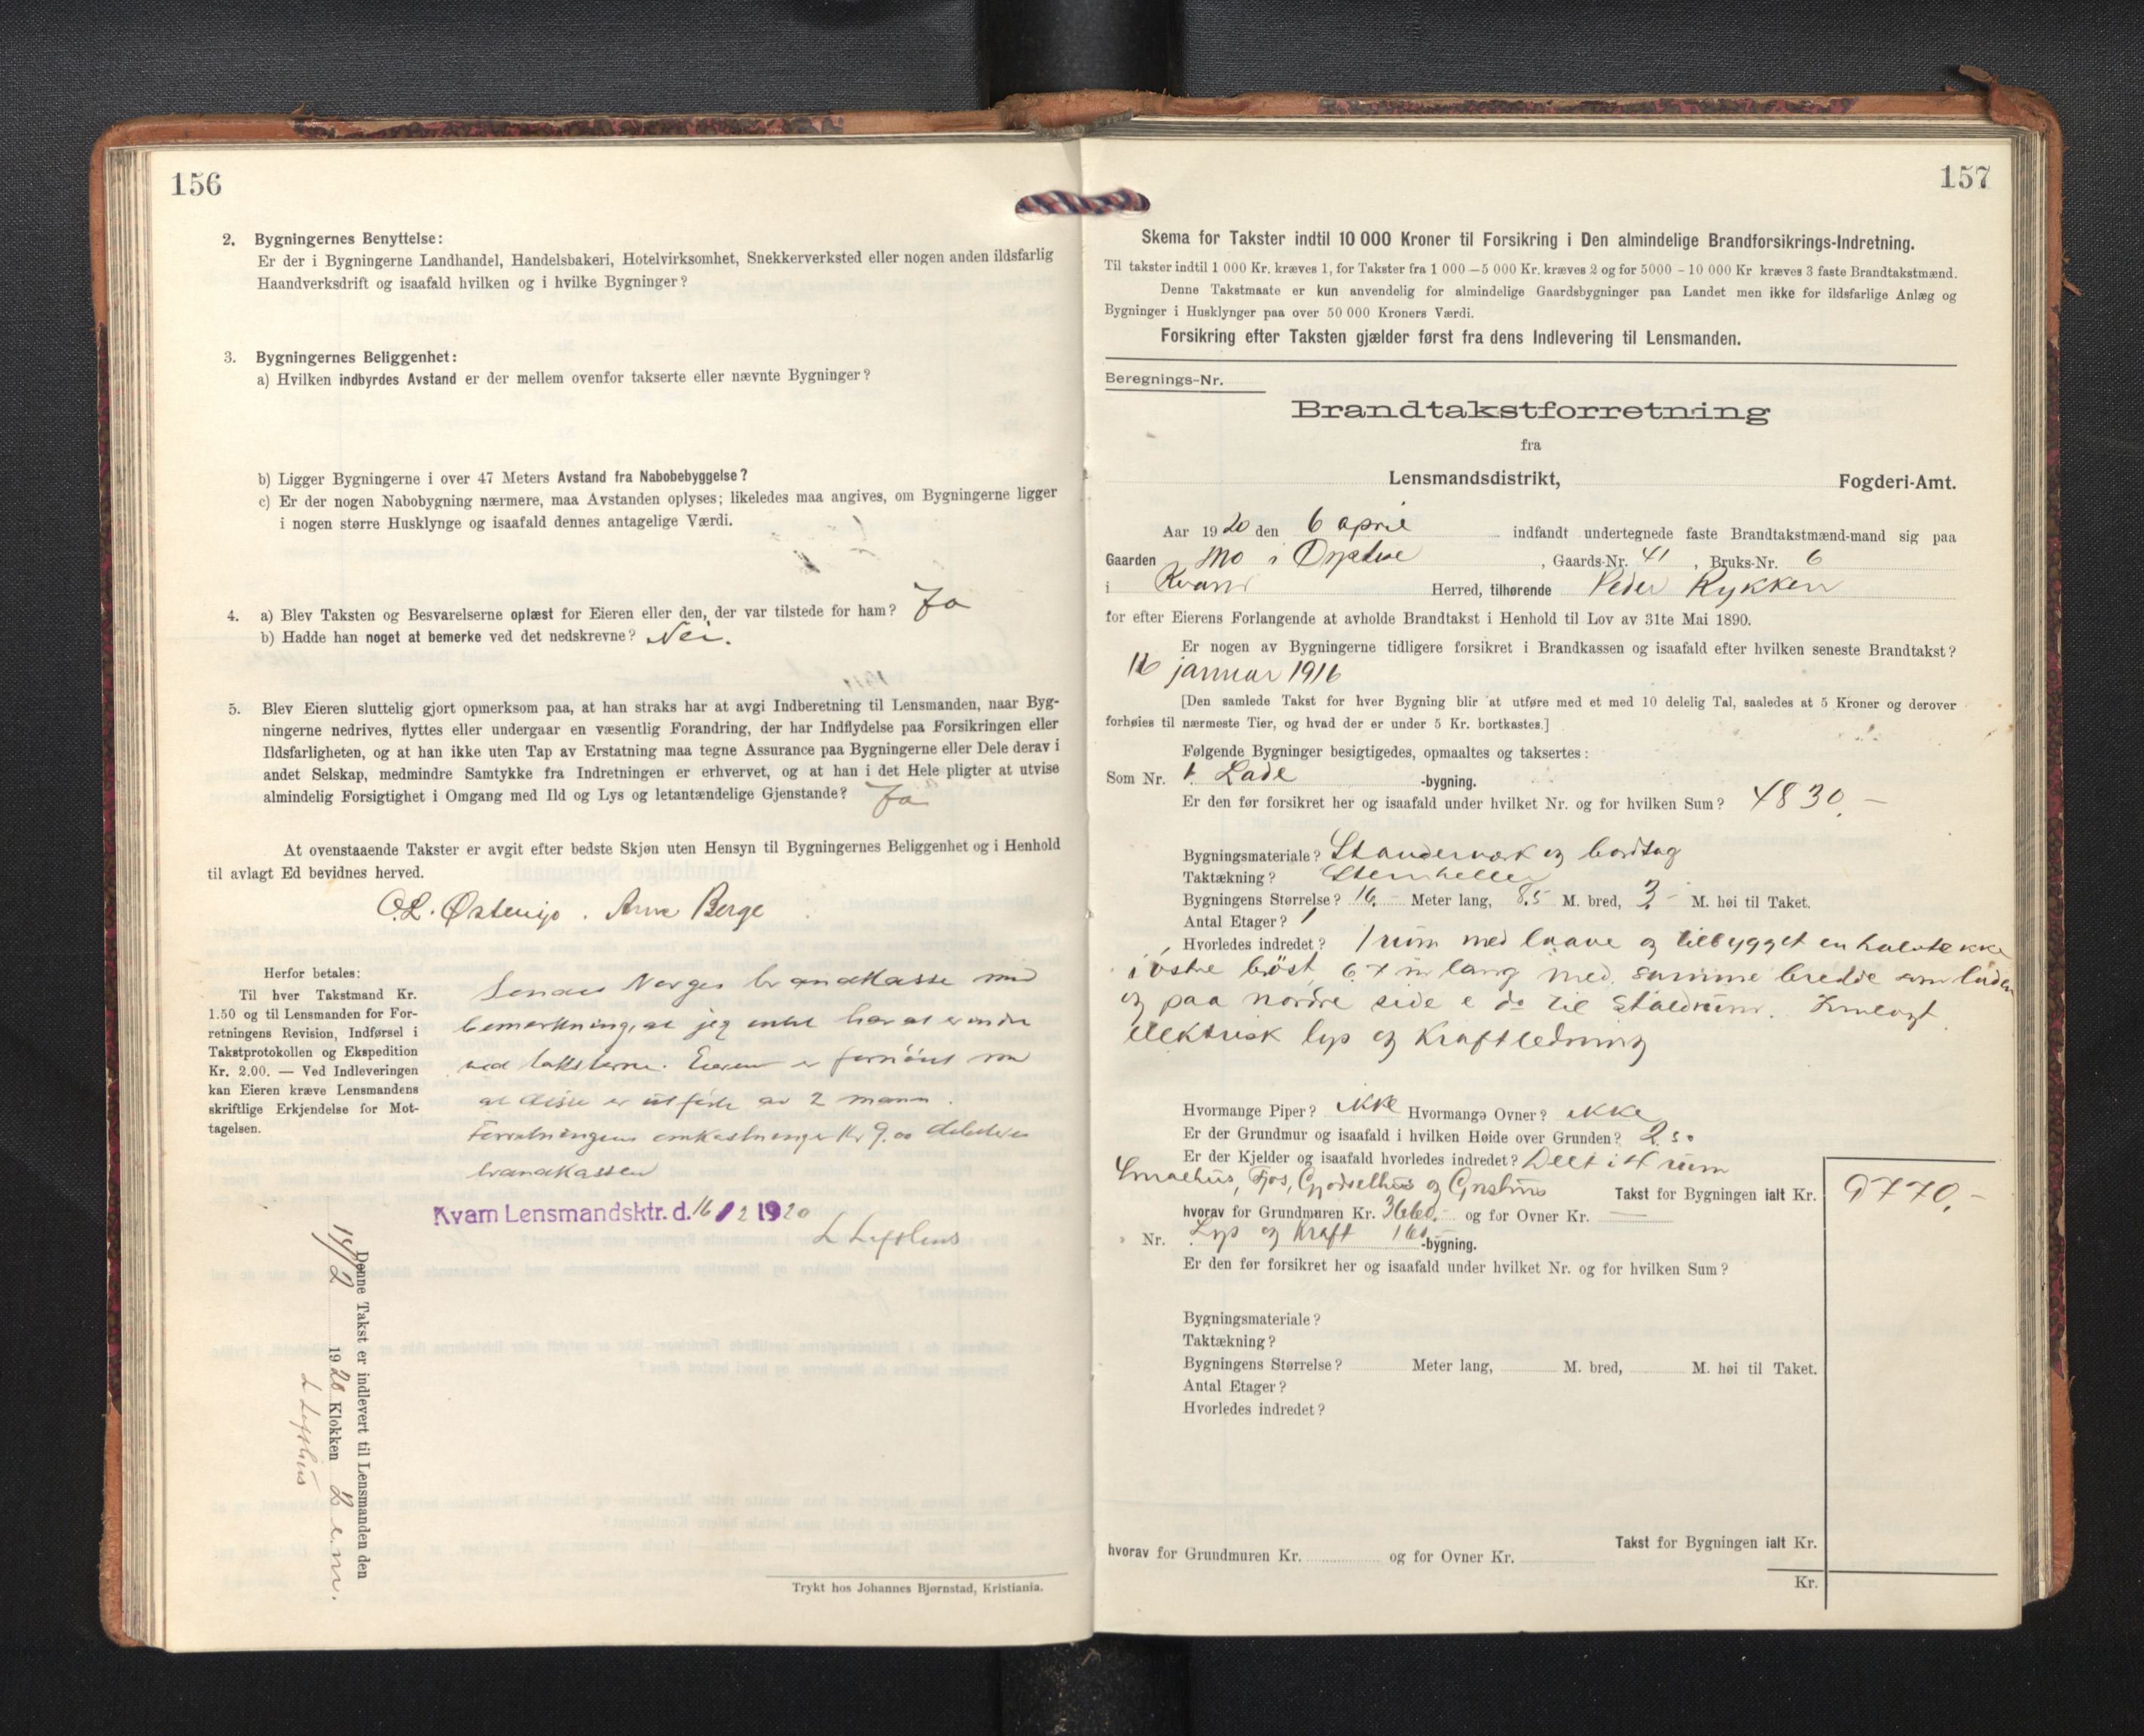 156
2. Bygningernes Benyttelse:
Er der i Bygningerne Landhandel, Handelsbakeri, Hotelvirksomhet, Snekkerverksted eller nogen anden ildsfarlig
Haandverksdrift og isaafald hvilken og i hvilke Bygninger?
3. Bygningernes Beliggenhet:
a) Hvilken indbyrdes Avstand er der mellem ovenfor takserte eller nævnte Bygninger?
b) Ligger Bygningerne i over 47 Meters Avstand fra Nabobebyggelse?
c) Er der nogen Nabobygning nærmere, maa Avstanden oplyses; likeledes maa angives, om Bygningerne ligger
i nogen større Husklynge og isaafald dennes antagelige Værdi.
4. a) Blev Taksten og Besvarelserne oplæst for Eieren eller den, der var tilstede for ham? Ja
b) Hadde han noget at bemerke ved det nedskrevne? Nei.
5. Blev Eieren sluttelig gjort opmerksom paa, at han straks har at avgi Indberetning til Lensmanden, naar Byg-
ningerne nedrives, flyttes eller undergaar en væsentlig Forandring, der har Indflydelse paa Forsikringen eller
Ildsfarligheten, og at han ikke uten Tap av Erstatning maa tegne Assurance paa Bygningerne eller Dele derav i
andet Selskap, medmindre Samtykke fra Indretningen er erhvervet, og at han i det Hele pligter at utvise
almindelig Forsigtighet i Omgang med Ild og Lys og letantændelige Gjenstande? Ja
At ovenstaaende Takster er avgit efter bedste Skjøn uten Hensyn til Bygningernes Beliggenhet og i Henhold
til avlagt Ed bevidnes herved.
O.L. Østensjø. Arne Berge
Herfor betales:
Til hver Takstmand Kr.
1.50 og til Lensmanden for For-
retningens Revision, Indførsel i
Takstprotokollen og Ekspedition
Kr. 2.00. — Ved Indleveringen
kan Eieren kræve Lensmandens
skriftlige Erkjendelse for Mot-
tagelsen.
Sendes Norges brandkasse med
bemerkning, at jeg intet har at erindre
ved taksterne. Eieren er fornöiet med
at disse er utförte av 2 mænn.
Forretningens omkostninger Kr 9.00 debiteres
brandkassen
Kvam Lensmandsktr. d. 16/2 1920
L Lofthus
Denne Takst er indlevert til Lensmanden den
14/2 1920 Klokken 2 e.m.
L Lofthus
Trykt hos Johannes Bjørnstad, Kristiania.
157
Skema for Takster indtil 10 000 Kroner til Forsikring i Den almindelige Brandforsikrings-Indretning.
Til takster indtil 1 000 Kr. kræves 1, for Takster fra 1 000 — 5 000 Kr. kræves 2 og for 5000 - 10 000 Kr kræves 3 faste Brandtakstmænd.
Denne Takstmaate er kun anvendelig for almindelige Gaardsbygninger paa Landet men ikke for ildsfarlige Anlæg og
Bygninger i Husklynger paa over 50 000 Kroners Værdi.
Forsikring efter Taksten gjælder først fra dens Indlevering til Lensmanden.
Beregnings-Nr.
Brandtakstforretning
fra
Lensmandsdistrikt, Fogderi-Amt.
Aar 1920 den 6 april indfandt undertegnede faste Brandtakstmænd-mand sig paa
Gaarden Mo i , Gaards-Nr. 41, Bruks-Nr. 6
i Kvam Herred, tilhørende Peder Rykken
for efter Eierens Forlangende at avholde Brandtakst i Henhold til Lov av 31te Mai 1890.
Er nogen av Bygningerne tidligere forsikret i Brandkassen og isaafald efter hvilken seneste Brandtakst?
januar 1916
[Den samlede Takst for hver Bygning blir at utføre med et med 10 delelig Tal, saaledes at 5 Kroner og derover
forhøies til nærmeste Tier, og hvad der er under 5 Kr. bortkastes.]
Følgende Bygninger besigtigedes, opmaaltes og taksertes:
Som Nr. 1. Lade -bygning.
Er den før forsikret her og isaafald under hvilket Nr. og for hvilken Sum? 4830.—
Bygningsmateriale? Standerverk og bordtag
Taktækning? Stenheller
Bygningens Størrelse? 16. - Meter lang, 8.5 M. bred, 3 - M. høi til Taket.
Antal Etager? 1
Hvorledes indredet? 1 rum med laave og tilbygget en halvtekke
i östre bröst, 6 × m lang med samme bredde som laden
og paa nordre side e do til Staldrum. Innlagt
elektrisk lys og Kraftledning
Hvormange Piper? ikke Hvormange Ovner? ikke
Er der Grundmur og isaafald i hvilken Høide over Grunden? 2.50
Er der Kjelder og isaafald hvorledes indredet? Delt i 4 rum
Smaehus, Fjos, Gjödselhus og Grishus Takst for Bygningen ialt Kr. 9770,-
hvorav for Grundmuren Kr. 3660.- og for Ovner Kr. —
Nr. Lys og Kraft 160 -bygning.
Er den før forsikret her og isaafald under hvilket Nr. og for hvilken Sum?
Bygningsmateriale?
Taktækning?
Bygningens Størrelse? Meter lang, M. bred, M. høi til Taket.
Antal Etager?
Hvorledes indredet?
Takst for Bygningen ialt Kr.
hvorav for Grundmuren Kr. og for Ovner Kr.
Kr.